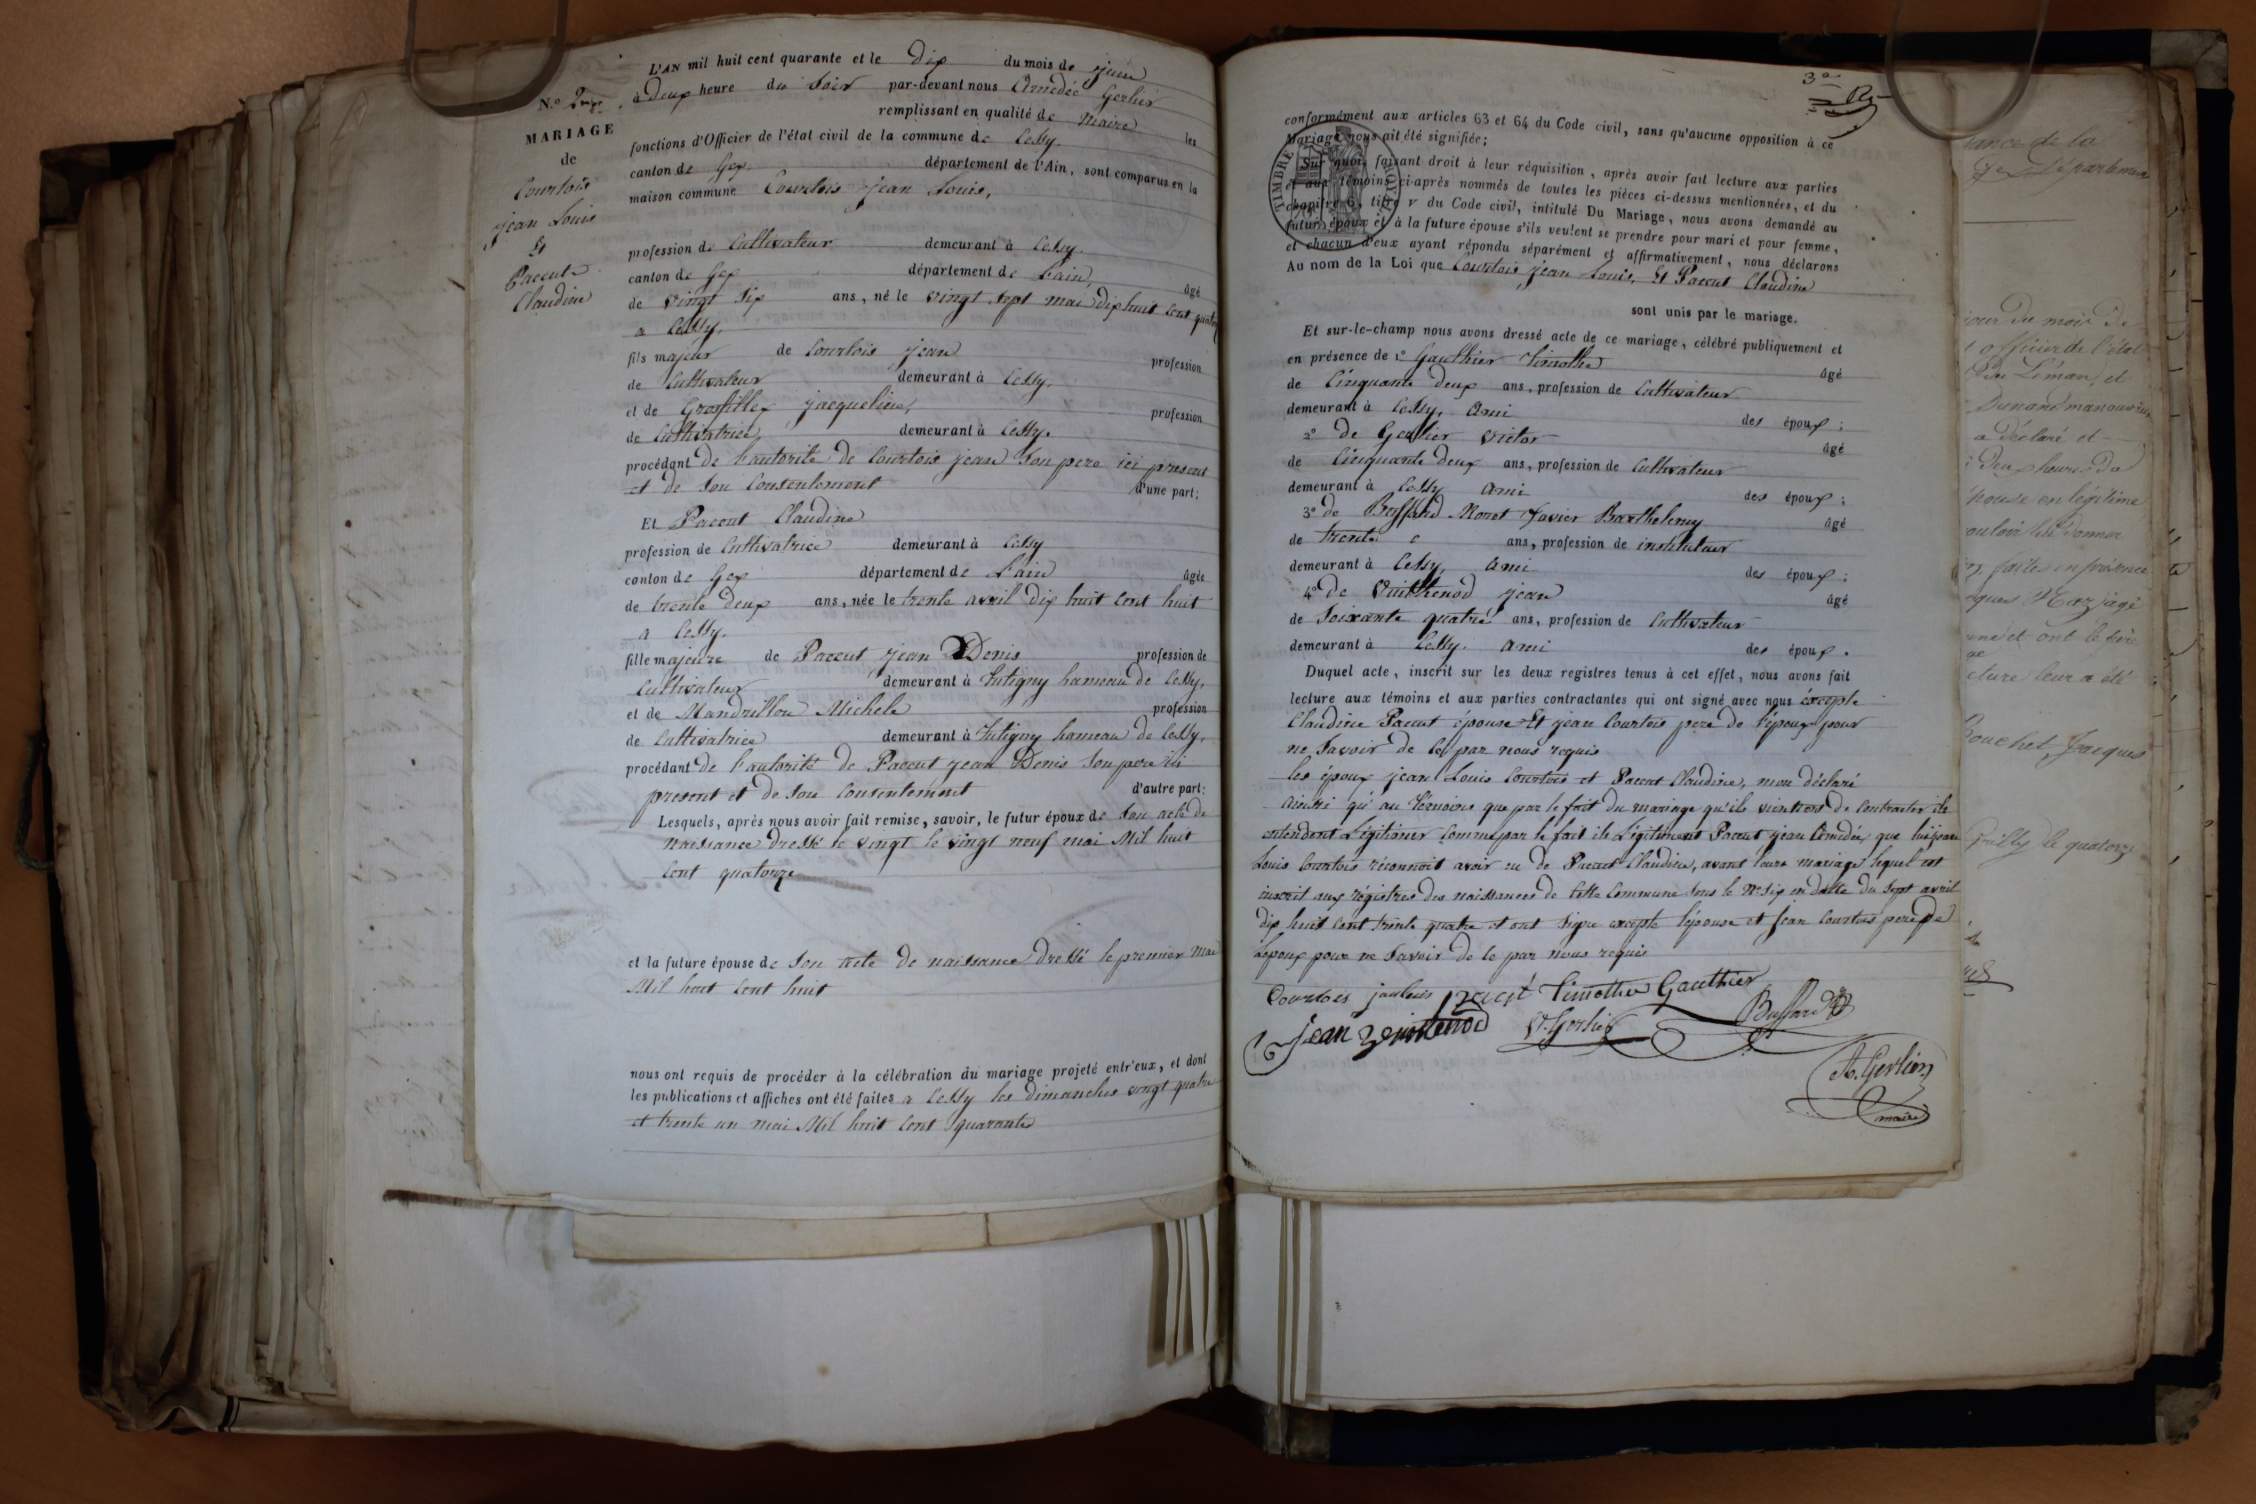 L'AN mil huit cent quarante et le dix du mois de juin
N.º 2
à deux heure du soir par-devant nous Amédée Gerlier
remplissant en qualité de Maire les
MARIAGE
fonctions d'Officier de l'état civil de la commune de Cessy.
de
canton de Gex. département de l'Ain, sont comparus en la
Courtois
maison commune Courtois jean Louis,
jean Louis
Et
profession de Cultivateur demeurant à Cessy.
Paccut
canton de Gex département de L'ain, âgé
Claudine
de vingt six ans, né le vingt sept mai dix huit cent quatorze
a Cessy,
fils majeur de Courtois jean profession
de Cultivateur demeurant à Cessy.
et de Grosfillex jacqueline, profession
de Cultivatrice demeurant à Cessy.
procédant de L'autorité de Courtois jean son pere ici present
et de son Consentement d'une part;
Et Paccut Claudine
profession de Cultivatrice demeurant à Cessy
canton de Gex département de L'ain âgée
de trente deux ans, née le trente avril dix huit cent huit
a Cessy.
fille majeure de Paccut jean Denis profession de
Cultivateur demeurant à Tutigny hameau de Cessy,
et de Mandrillon Michele profession
de Cultivatrice demeurant à Tutigny hameau de Cessy,
procédant de L'autorité de Paccut jean Denis son pere ici
present et de son Consentement d'autre part;
Lesquels, après nous avoir fait remise, savoir, le futur époux de son acte de
naissance dressé le vingt le vingt neuf mai Mil huit
Cent quatorze
et la future épouse de son acte de naissance dressé le premier mai
Mil huit Cent huit
nous ont requis de procéder à la célébration du mariage projeté entr'eux, et dont
les publications et affiches ont été faites a Cessy les dimanches vingt quatre
et trente un mai Mil huit Cent quarante
3e
conformément aux articles 63 et 64 du Code civil, sans qu'aucune opposition à ce
Mariage nous ait été signifiée;
TIMBRE ROYAL
Sur quoi, faisant droit à leur réquisition, après avoir fait lecture aux parties
et aux témoins ci-après nommés de toutes les pièces ci-dessus mentionnées, et du
chapitre 6, titre V du Code civil, intitulé Du Mariage, nous avons demandé au
futur époux et à la future épouse s'ils veulent se prendre pour mari et pour femme,
et chacun d'eux ayant répondu séparément et affirmativement, nous déclarons
Au nom de la Loi que Courtois jean Louis, Et Paccut Claudine
sont unis par le mariage.
Et sur-le-champ nous avons dressé acte de ce mariage, célébré publiquement et
en présence de 1º Gauthier Timothé âgé
de Cinquante deux ans, profession de Cultivateur
demeurant à Cessy, ami des époux;
2º de Gerlier Victor âgé
de Cinquante deux ans, profession de Cultivateur
demeurant à Cessy ami des époux;
3º de Buffard Moret Xavier Barthelemy âgé
de trente ans, profession de instituteur
demeurant à Cessy, ami des époux;
4º de Vuithenod jean âgé
de Soixante quatre ans, profession de Cultivateur
demeurant à Cessy. ami des époux.
Duquel acte, inscrit sur les deux registres tenus à cet effet, nous avons fait
lecture aux témoins et aux parties contractantes qui ont signé avec nous éxcepté
Claudine Paccut épouse Et jean Courtois pere de L'époux pour
ne savoir de ce par nous requis
les époux jean Louis Courtois et Paccut Claudine, mon déclaré
ainsi qu'au témoins que par le fait du mariage qu'ils viennent de Contracter ils
entendent Légitimer comme par le fait ils Légitiment Paccut jean Amédée, que lui jean
Louis Courtois réconnoit avoir eu de Paccut Claudine, avant leurs mariage, lequel est
inscrit aux régistres des naissances de Cette Commune sous le Nº six en datte du sept avril
dix huit cent trente quatre et ont signé excepté L'épouse et jean Courtois pere de
L'époux pour ne savoir de ce par nous requis
Courtois janlouis Timothée Gauthier
jean Vuithenod Vr. Gerlier Buffard
A. Gerlier
maire
tance de la
jour du mois de
officier de l'état
Léman, et
a déclaré et
épouse en légitime
faites en présence
et ont
cture leur a été
Bouchet Jacques
le quatorze